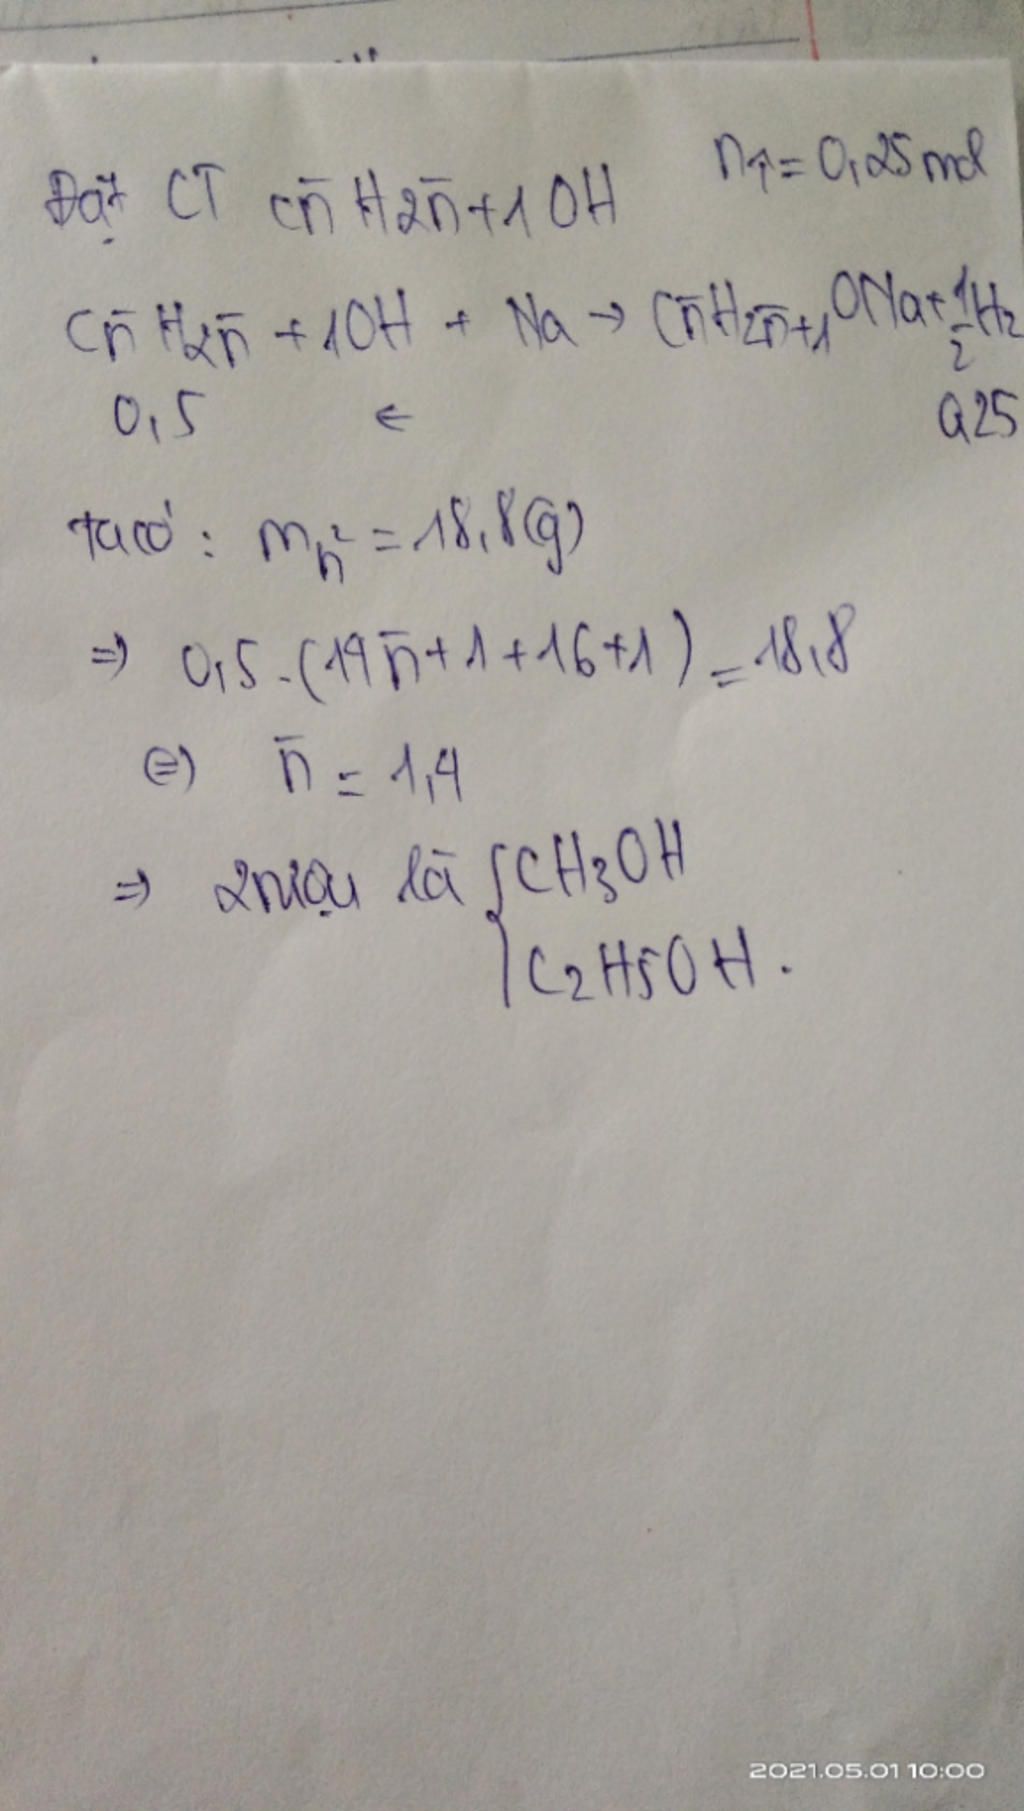 Đặt CT Cn̄H2n̄+1OH n↑=0,25mol
Cn̄H2n̄+1OH + Na → Cn̄H2n̄+1ONa+1/2H2
0,5 ← 0,25
Ta có: mh² = 18,8(g)
=> 0,5.(14n̄+1+16+1) = 18,8
(=) n̄ = 1,4
=> 2 rượu là { CH3OH
C2H5OH.
2021.05.01 10:00